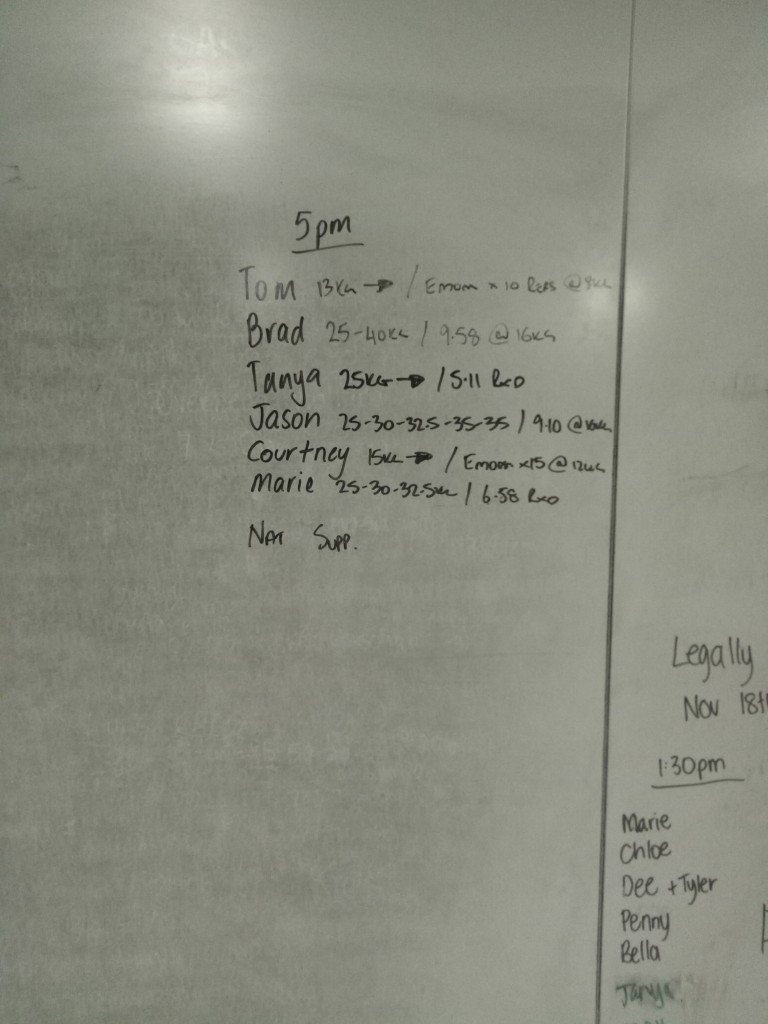 5pm
Tom 13KG → / Emom x 10 Reps @9KG
Brad 25-40KG / 9.58 @ 16KG
Tanya 25KG → / 5.11 RxD
Jason 25-30-32.5-35-35 / 9.10 @16KG
Courtney 15KG → / Emom x15 @ 12KG
Marie 25-30-32.5KG / 6.58 RxD
Nat Supp.
Legally
Nov 18th
1:30pm
Marie
Chloe
Dee + Tyler
Penny
Bella
Tanya